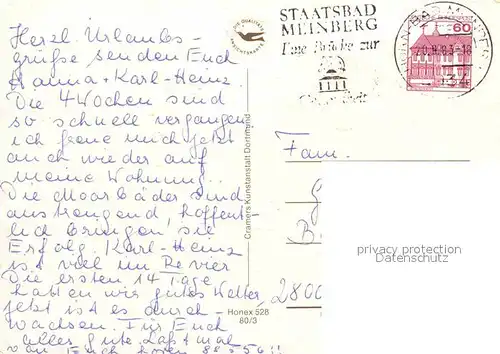 Herzl. Urlaubs-
grüße senden Euch
Hanna + Karl-Heinz
Die 4 Wochen sind
so schnell vergangen
ich freue mich jetzt
auch wieder auf
meine Wohnung.
Die Moorbäder sind
anstrengend, hoffent-
lich bringen sie
Erfolg. Karl-Heinz
ist viel im Revier
Die ersten 14 Tage
hatten wir gutes Wetter
jetzt ist es durch-
wachsen. Für Euch
alles gute. Laßt mal
von Euch hören
DIE QUALITÄTS
ANSICHTSKARTE
Cramers Kunstanstalt Dortmund
Honex 528
80/3
STAATSBAD
MEINBERG
Eine Brücke zur
Gesundheit
HORN-BAD MEINBERG
60
Fam.
B.
2800
privacy protection